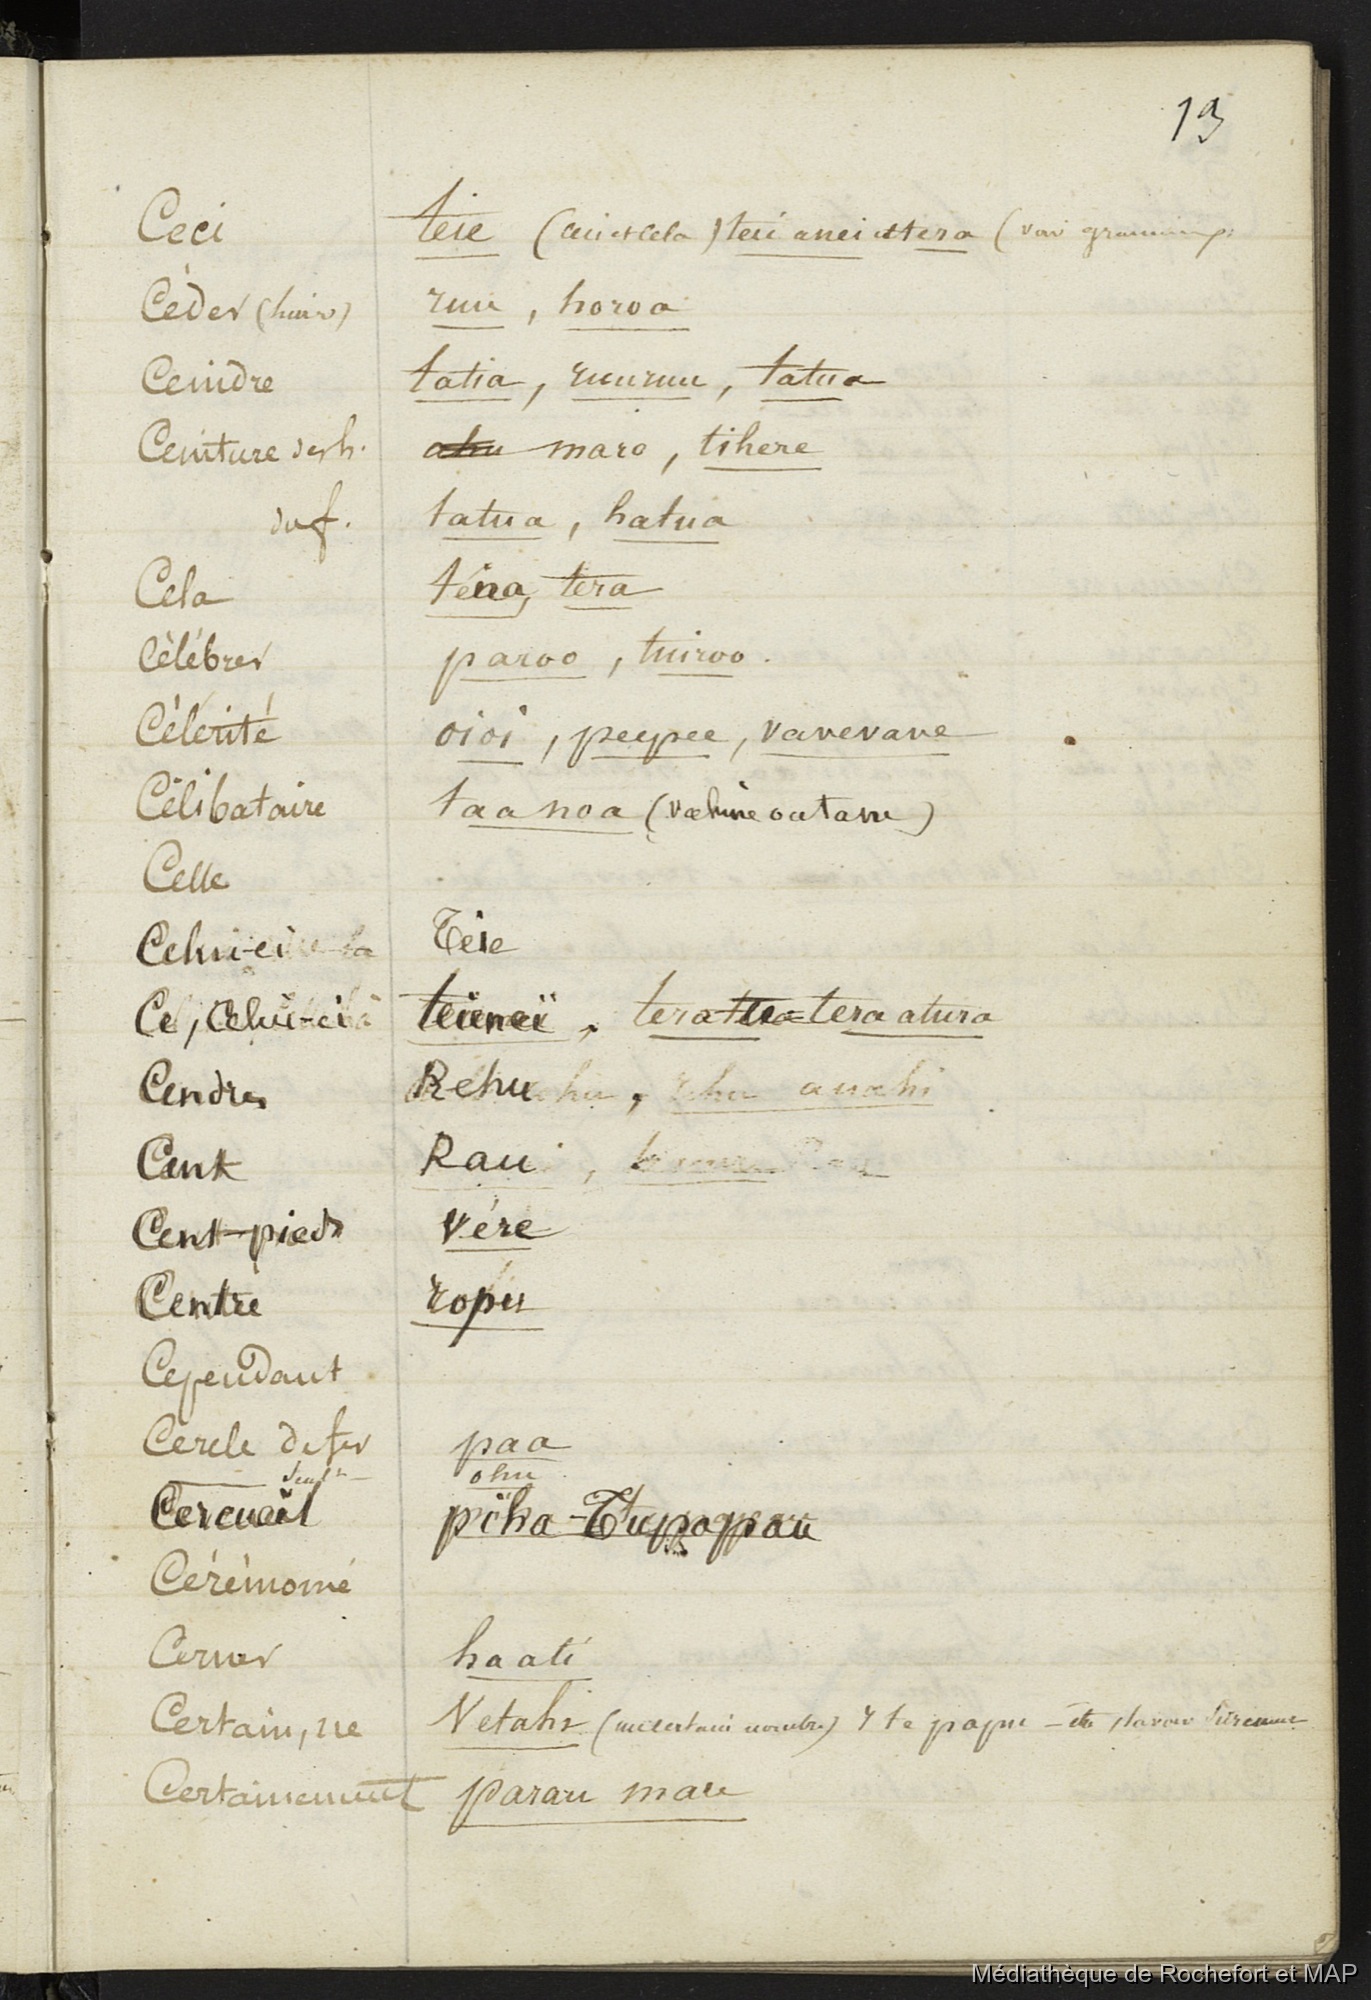 13
Ceci teie (ceci et cela) teii aneiettera (voir gramm p:
Céder ruu, horoa
Ceindre tatia, ruuruu, tatua
Ceinture des h. ahu maro, tihere
du f. tatua, hatua
Cela téna, tera
Célébrer paroo, tuiroo.
Célérité oioi, peepee, vavevave
Célibataire taa noa (vahine ou tane)
Celle
Celui-ci Teie
Ce, Celui-ci teienei, tera atura
Cendres Rehu, rehu auahi
Cent Rau
Cent-pieds vére
Centre ropu
Cependant
Cercle de fer paa
ohu
Cercueil piha-Tupapau
Cérémonie
Cerner haati
Certain, ne Vetahi (un certain nombre)
Certainement parau mau
Médiathèque de Rochefort et MAP